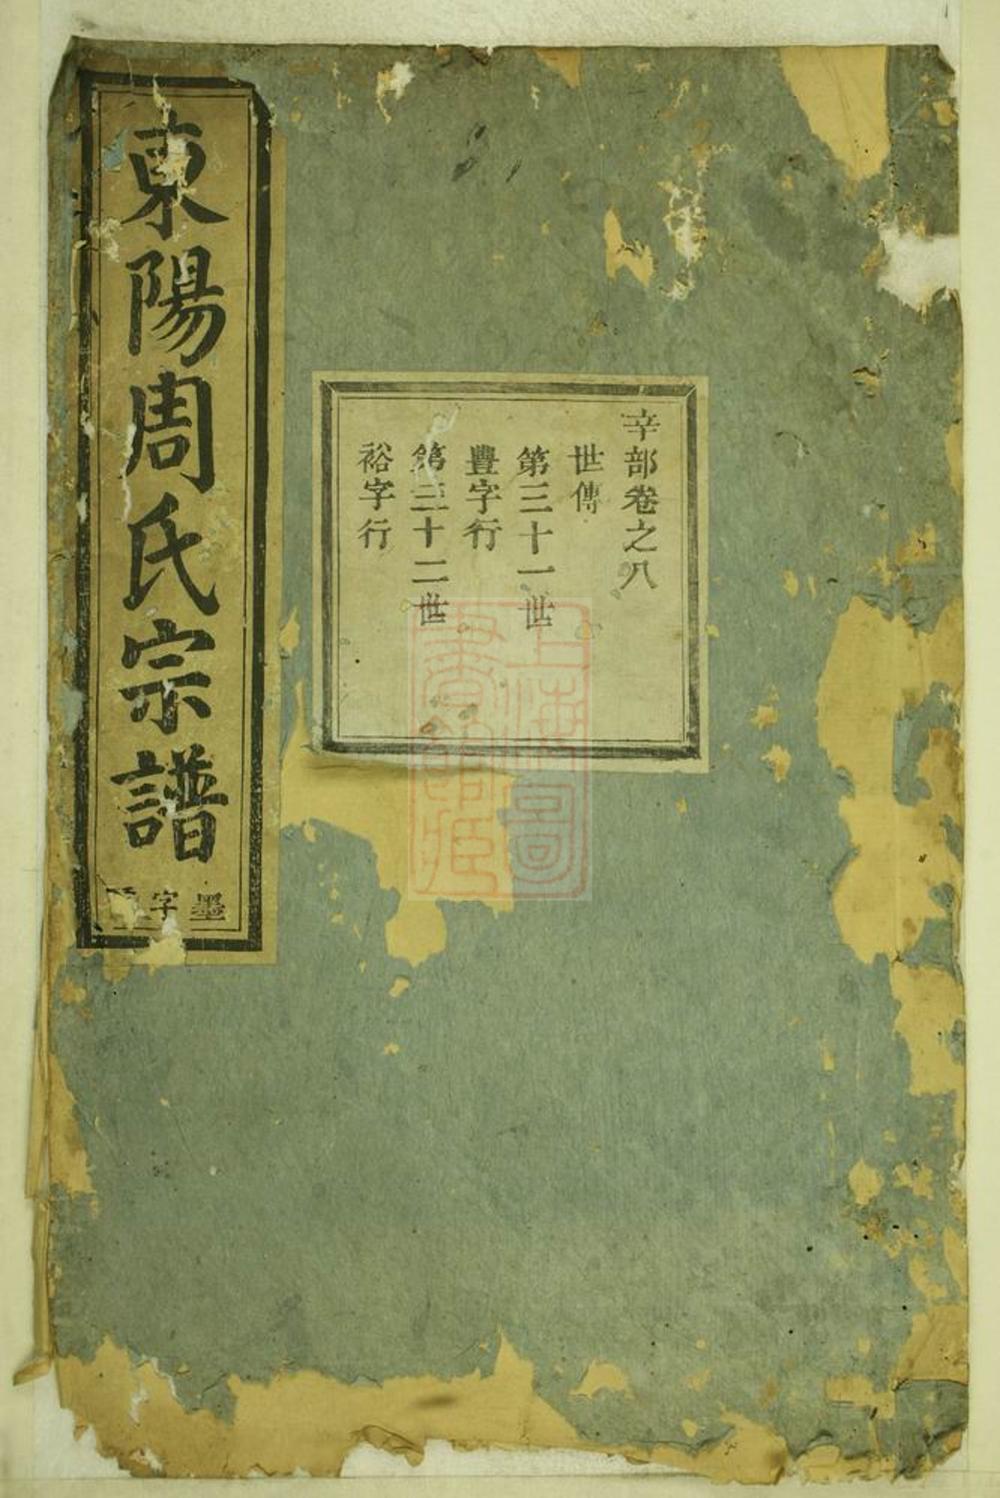 東陽周氏宗譜
墨字
辛部卷之八
世傳
第三十一世
豐字行
第三十二世
裕字行
上海圖
書館藏